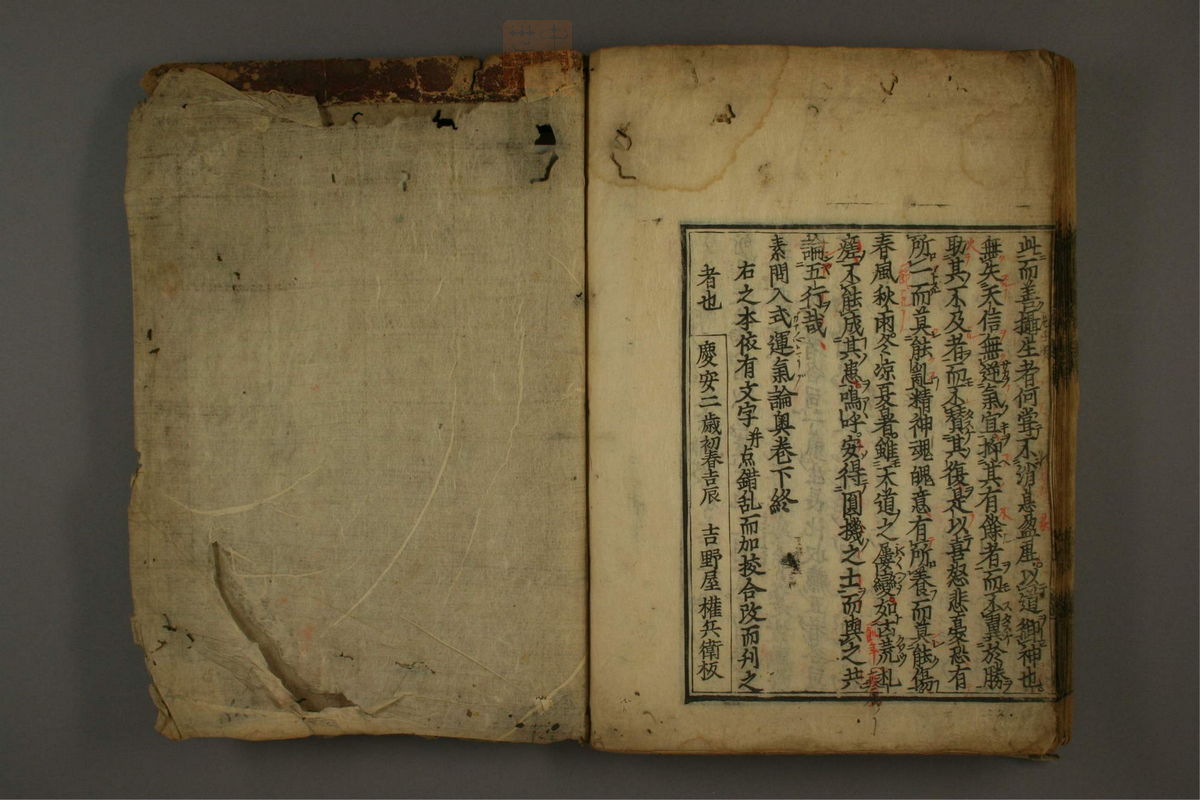 此而善攝生者何嘗不消息盈虛以道御神也
無失天信無逆氣宜抑其有餘者而不翼於勝
助其不及者而不賛其復是以喜怒悲憂恐有
所一而莫能亂精神魂魄意有所養而莫能傷
春風秋雨冬凉夏暑雖天道之屢變如古荒札
瘥不能成其患嗚呼安得圓機之士而與之共
論五行哉
素問入式運氣論奧卷下終
右之本依有文字并点錯乱而加挍合改而刊之
者也
慶安二歳初春吉辰 吉野屋權兵衛板